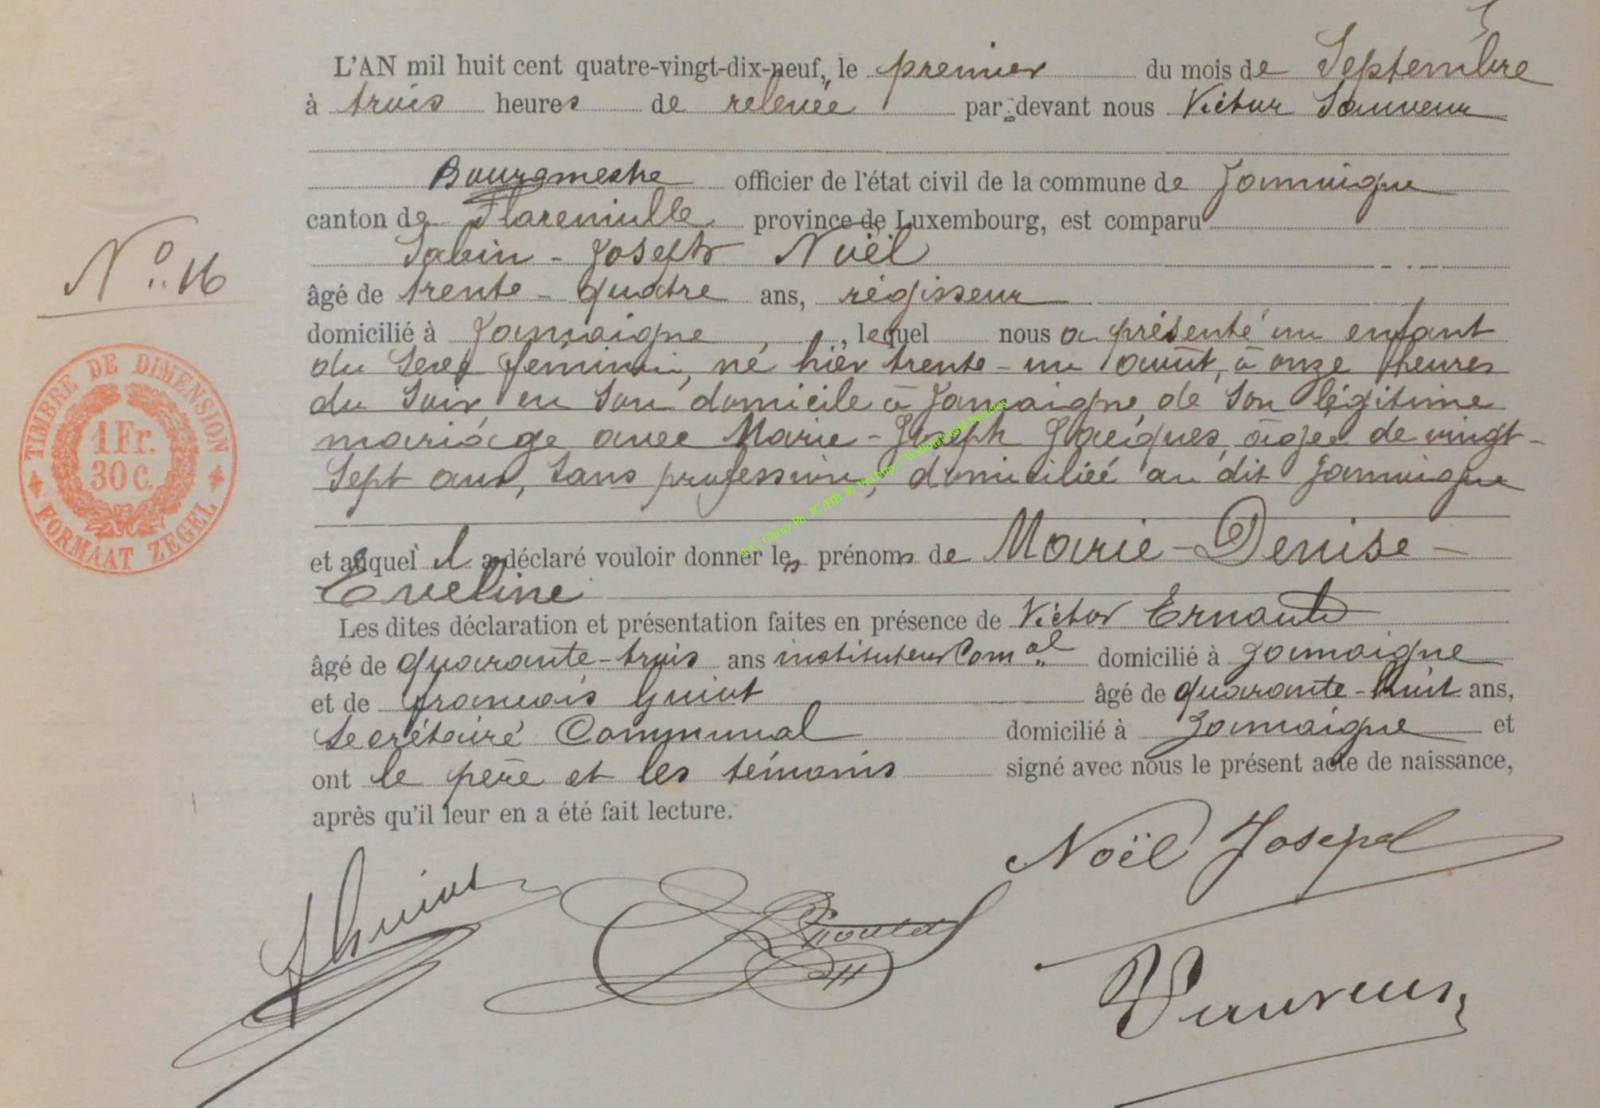 L'AN mil huit cent quatre-vingt-dix-neuf, le premier du mois de Septembre
à trois heures de relevée par-devant nous Victor Sauveur
Bourgmestre officier de l'état civil de la commune de Jamoigne
canton de Florenville province de Luxembourg, est comparu
Sabin - Joseph Noël
âgé de trente - quatre ans, régisseur
domicilié à Jamoigne, lequel nous a présenté un enfant
du Sexe féminin, né hier trente - un août, à onze heures
du Soir en Son domicile à Jamoigne de Son légitime
mariage avec Marie - Joseph Jacques, âgée de vingt-
Sept ans, Sans profession, domiciliée au dit Jamoigne
et auquel il a déclaré vouloir donner les prénoms de Marie - Denise -
Eveline
Les dites déclaration et présentation faites en présence de Victor Ernould
âgé de quarante-trois ans instituteur Com.al domicilié à Jamoigne
et de François Guiot âgé de quarante-huit ans,
Secrétaire Communal domicilié à Jamoigne et
ont le père et les témoins signé avec nous le présent acte de naissance,
après qu'il leur en a été fait lecture.
N° 16
TIMBRE DE DIMENSION
1 Fr.
30 C.
FORMAAT ZEGEL
Noël Joseph
F Guiot
V Sauveur